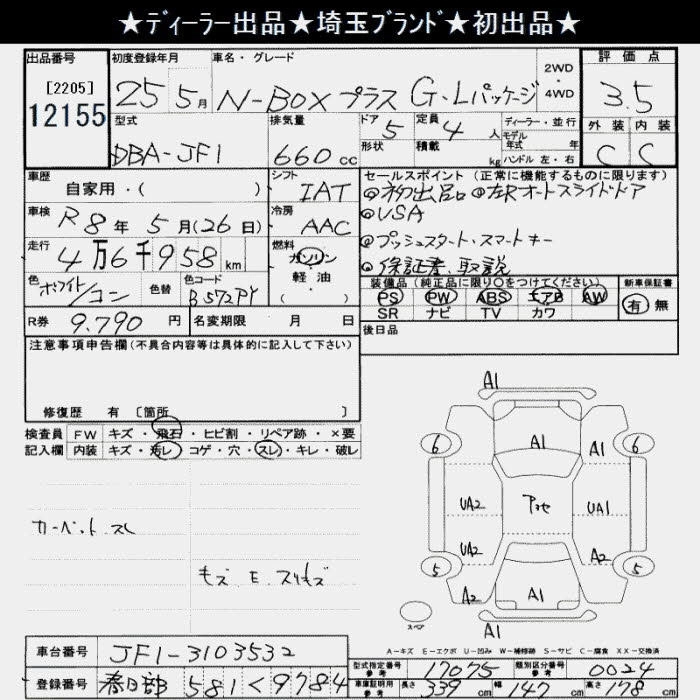 ★ディーラー出品★埼玉ブランド★初出品★
出品番号 初度登録年月 車名・グレード 2WD・4WD 評価点
[2205]
12155
25 5月 N-BOXプラス G・Lパッケージ 3.5
型式 排気量 ドア 5 定員 4人 ディーラー・並行 外装 内装
DBA-JF1 660cc 形状 積載 kg モデル年式 年 ハンドル 左・右 C C
車歴 シフト セールスポイント(正常に機能するものに限ります)
自家用・( ) IAT ◎初出品 ◎左Rオートスライドドア
車検 R8年5月(26日) 冷房 AAC ◎USA
走行 4万6千958km 燃料 ガソリン ◎プッシュスタート・スマートキー
軽油 ◎保証書、取説
色 ホワイト/コン 色替 色コード B572PY ( )
装備品(純正品に限り○をつけてください) 新車保証書
PS PW ABS エアB AW 有 無
SR ナビ TV カワ
R券 9.790円 名変期限 月 日 後日品
注意事項申告欄(不具合内容等は具体的に記入して下さい)
修復歴 有 [箇所 ]
検査員 FW キズ・飛石・ヒビ割・リペア跡・×要
記入欄 内装 キズ・汚レ・コゲ・穴・スレ・キレ・破レ
A1
6 A1 A1 6
UA2 アセ UA1
カーペット スレ
UA2
キズ E スリキズ
5 A2 5
A2 A1 A2
スペア A1
A-キズ E-エクボ U-凹み W-補修跡 S-サビ C-腐食 XX-交換済
車台番号 JF1-3103532
型式指定番号 参考 17075 類別区分番号 参考 0024
登録番号 春日部 581く9784
車庫証明用 参考 長さ 339cm 幅 147cm 高さ 178cm